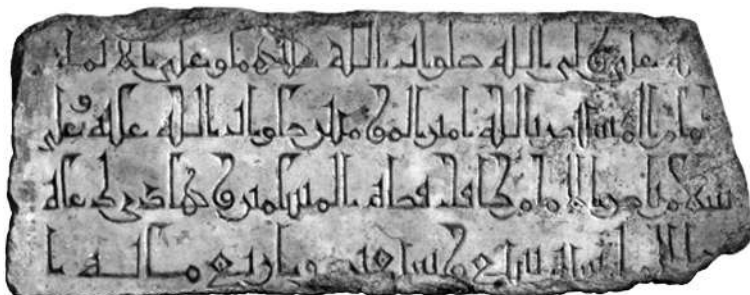 علي ولي الله صلوات الله عليهما وعلى الائمة
مام المستنصر بالله امير المؤمنين صلوات الله عليه وعلى
سلام ناصر الامام كافل قضاة المسلمين وهادي دعاة
سنة سبع وسبعين واربع مائة